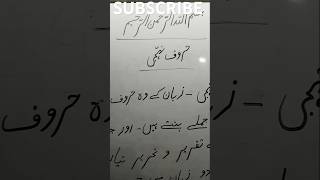 SUBSCRIBE
بسم اللہ الرحمن الرحیم
حروف تہجی
تہجی - زبان کے وہ حروف
جملے بنتے ہیں - اور
تقریر و تحریر
زبان میں